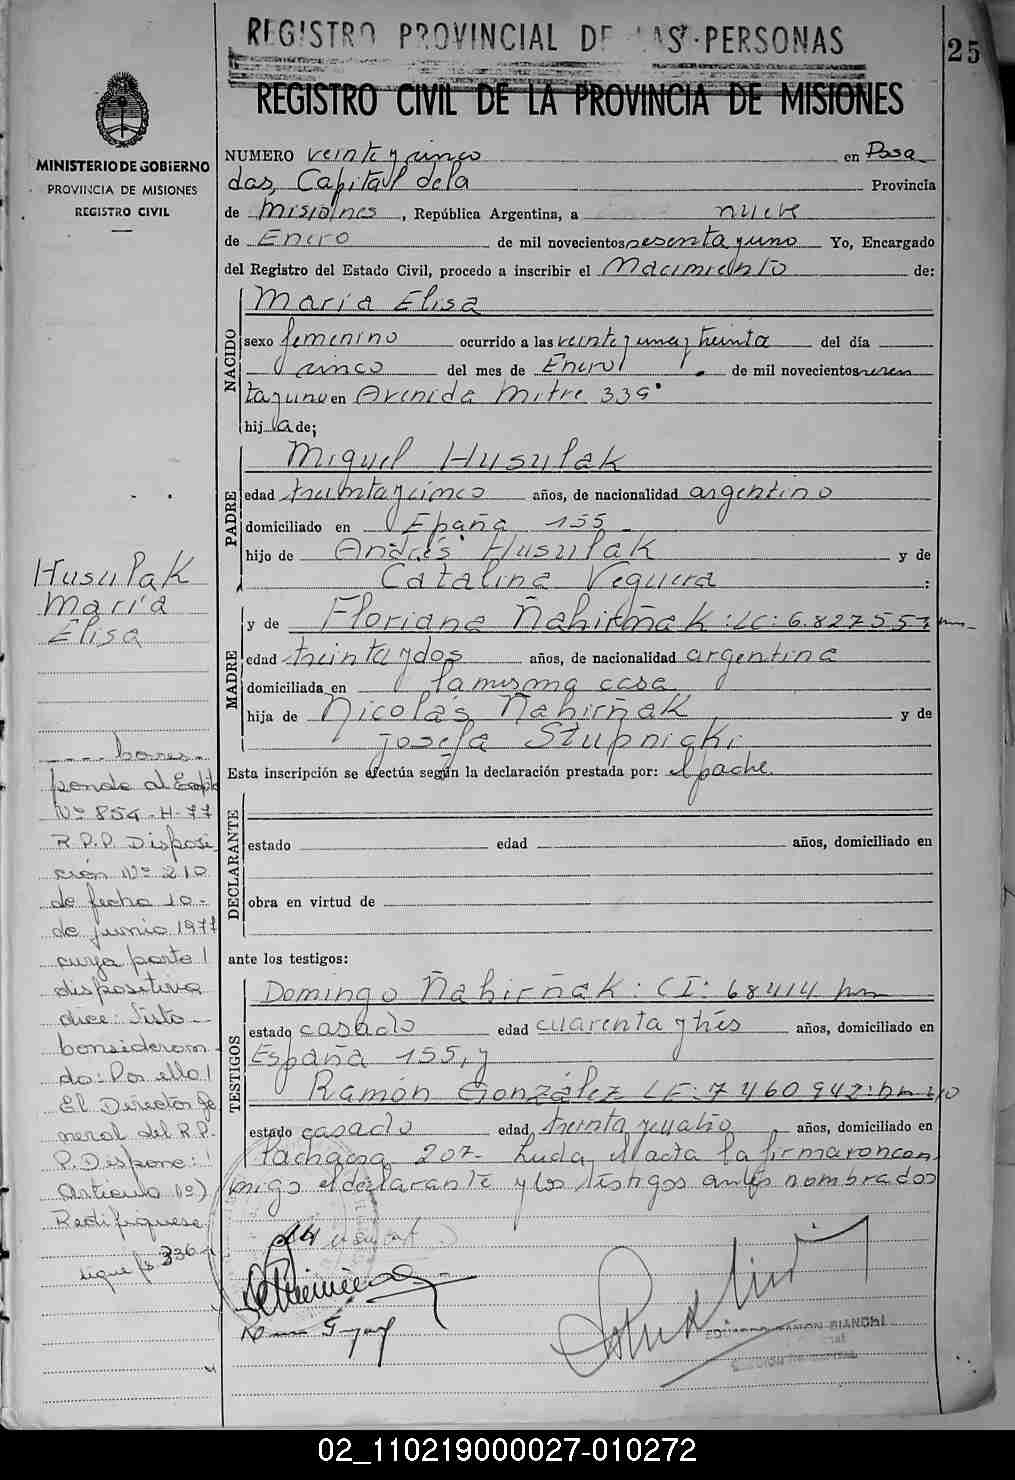 REGISTRO PROVINCIAL DE LAS PERSONAS
25
REGISTRO CIVIL DE LA PROVINCIA DE MISIONES
MINISTERIO DE GOBIERNO
PROVINCIA DE MISIONES
REGISTRO CIVIL
NUMERO veinte y cinco en Posa
das, Capital de la Provincia
de Misiones, República Argentina, a nueve
de Enero de mil novecientos sesenta y uno Yo, Encargado
del Registro del Estado Civil, procedo a inscribir el Nacimiento de:
NACIDO
María Elisa
sexo femenino ocurrido a las veinte y una y treinta del día
cinco del mes de Enero de mil novecientos sesen
ta y uno en Avenida Mitre 339
hij a de;
PADRE
Miguel Husulak
edad treinta y cinco años, de nacionalidad argentino
domiciliado en España 155
hijo de Andrés Husulak y de
Catalina Veguera :
MADRE
y de Floriana Ñahirñak : LC: 6.827557
edad treinta y dos años, de nacionalidad argentina
domiciliada en la misma casa
hija de Nicolás Ñahirñak y de
Josefa Stupnicki
Esta inscripción se efectúa según la declaración prestada por: el padre
DECLARANTE
estado edad años, domiciliado en
obra en virtud de
ante los testigos:
TESTIGOS
Domingo Ñahirñak : CI: 68414
estado casado edad cuarenta y tres años, domiciliado en
España 155, y
Ramón González LE: 7460942:
estado casado edad treinta y cuatro años, domiciliado en
207- Leida el acta la firmaron con
migo el declarante y los testigos antes nombrados
Husulak
María
Elisa
---- Corres-
ponde al Expte
Nº 854-H-77
R.P.P. Disposi
ción Nº 210
de fecha 10-
de junio 1977
cuya parte
dispositiva
dice: Visto-
Consideran
do: Por ello!
El Director Ge
neral del R.P.
P. Dispone:
Artículo 1º)
Rectifíquese
sigue fs 336
EDUARDO RAMON BIANCHI
02_110219000027-010272